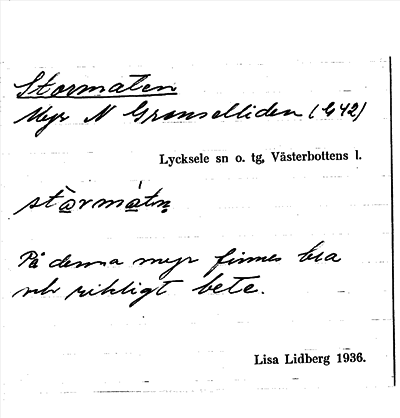 Stormaten
Myr N Granselliden (G42)
Lycksele sn o. tg, Västerbottens l.
På denna myr finnes bra
och rikligt bete.
Lisa Lidberg 1936.